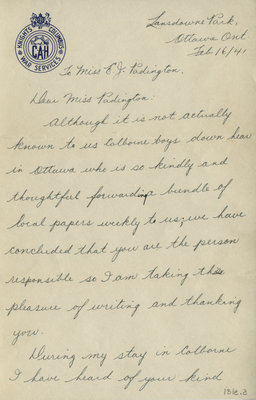 KNIGHTS OF COLUMBUS
CAH
WAR SERVICES
Lansdowne Park,
Ottawa Ont
Feb 16/41
To Miss E. J. Padington.
Dear Miss Padington:
Although it is not actually
known to us Colborne boys down hear
in Ottawa who is so kindly and
thoughtful forwarding bundle of
local papers weekly to us, we have
concluded that you are the person
responsible so I am taking this
pleasure of writing and thanking
you.
During my stay in Colborne
I have heard of your kind